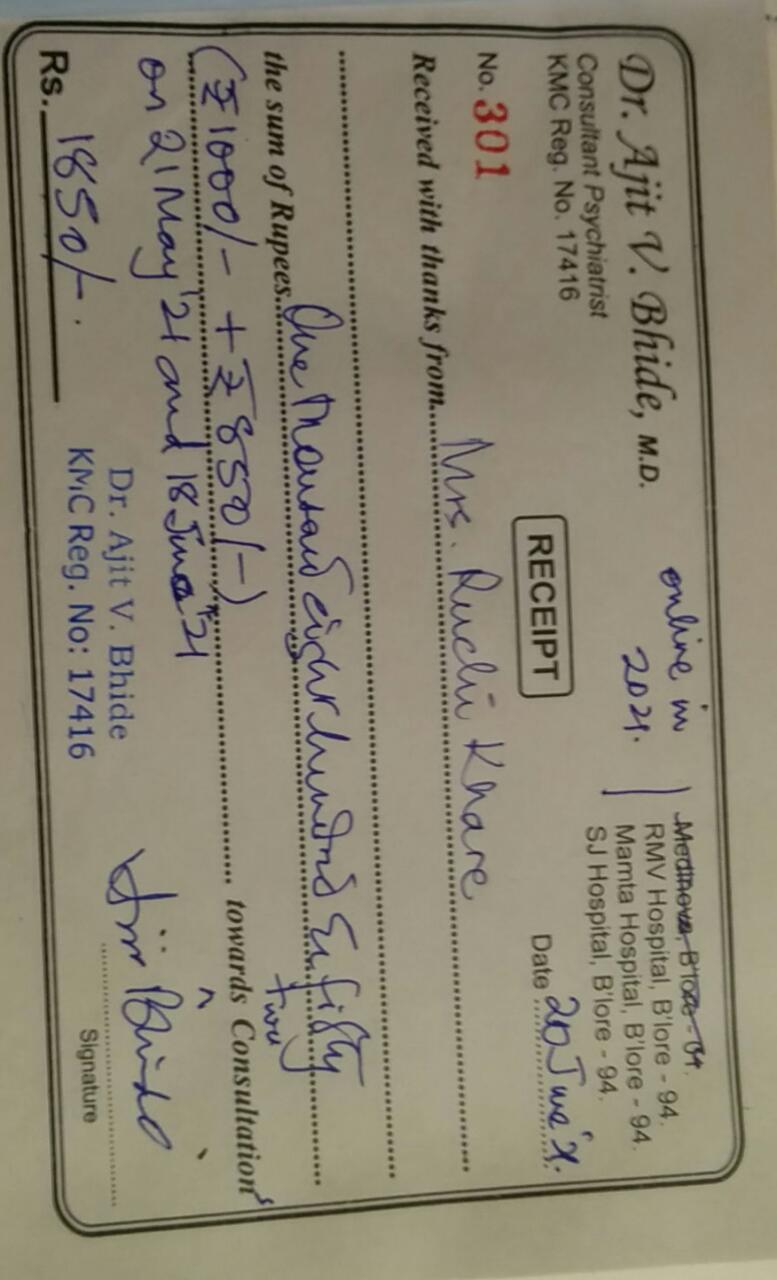 Dr. Ajit V. Bhide, M.D.
Consultant Psychiatrist
KMC Reg. No. 17416
online in
2021.
Medinova, B'lore - 94.
RMV Hospital, B'lore - 94.
Mamta Hospital, B'lore - 94.
SJ Hospital, B'lore - 94.
No. 301
RECEIPT
Date 20 June
Received with thanks from Mrs. Ruchi Khare
the sum of Rupees One thousand eight hundred & fifty
(₹ 1000/- + ₹ 850/-) towards two Consultations
on 21 May '21 and 18 June '21
Rs. 1850/-.
Dr. Ajit V. Bhide
KMC Reg. No: 17416
Ajit Bhide
Signature